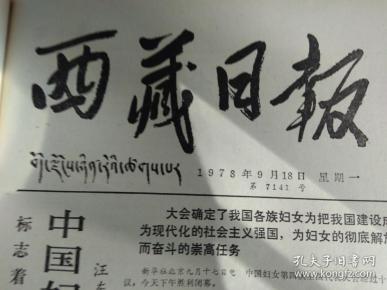 西藏日報
1978年9月18日 星期一
第7141号
大会确定了我国各族妇女为把我国建设成
为现代化的社会主义强国，为妇女的彻底解放
而奋斗的崇高任务
新华社北京九月十七日电 中国妇女第四
议，今天下午胜利闭幕。
中国妇
标志着
汪东